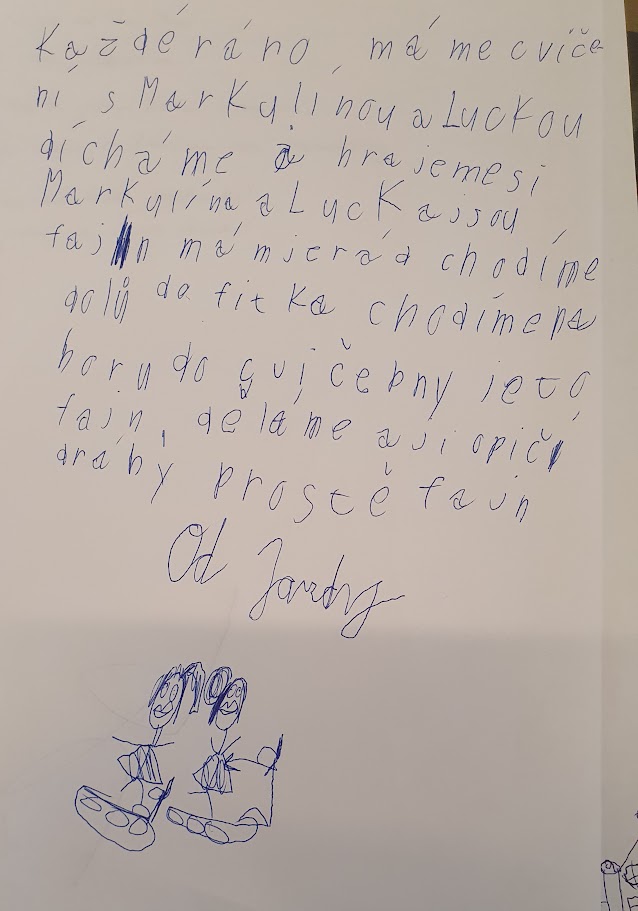 Každé ráno, máme cviče
ní s Markulínou a Luckou
dícháme a hrajemesi
Markulína a Lucka jsou
fajn má mjerád chodíme
dolů do fitka chodímena
horu do cvičebny jeto
fajn, děláme aji opičí
dráhy prostě fajn
Od Jardy